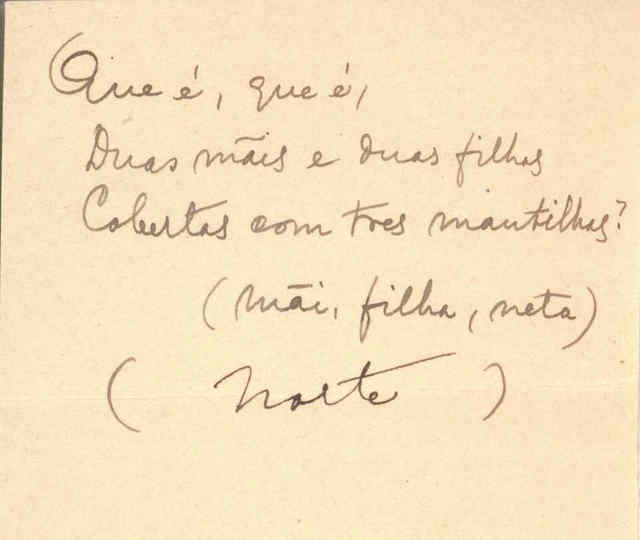 Que é, que é,
Duas mãis e duas filhas
Cobertas com tres mantilhas?
(mãi, filha, neta)
(Norte)